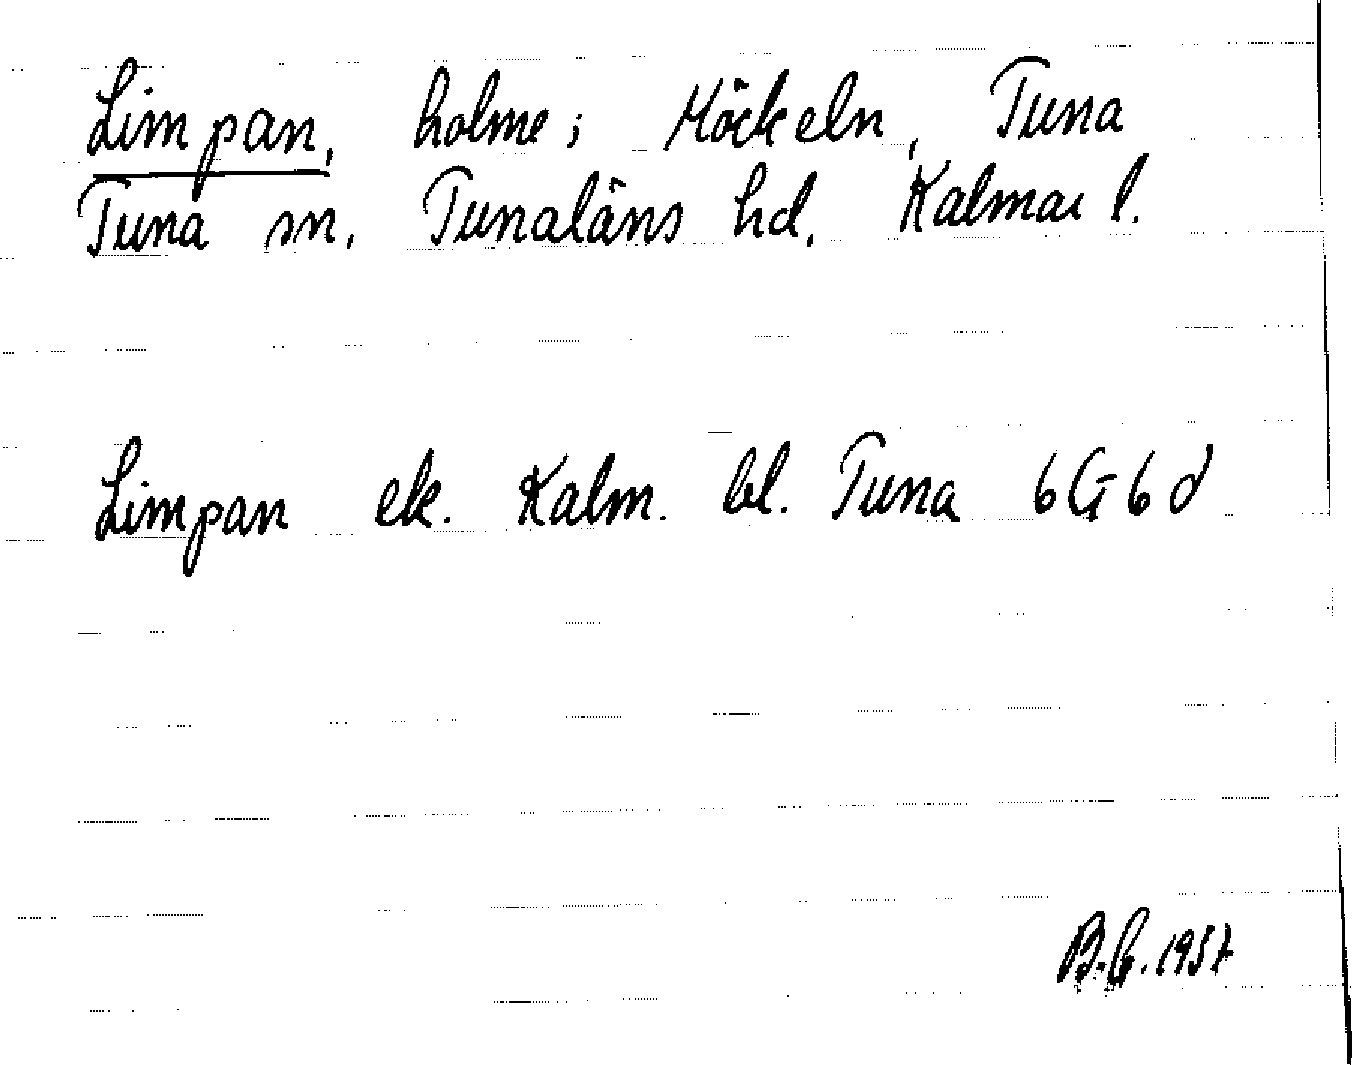 Limpan, holme; Möckeln, Tuna
Tuna sn. Tunaläns hd. Kalmar l.
Limpan ek. Kalm. bl. Tuna 6G6d
B.G. 1957